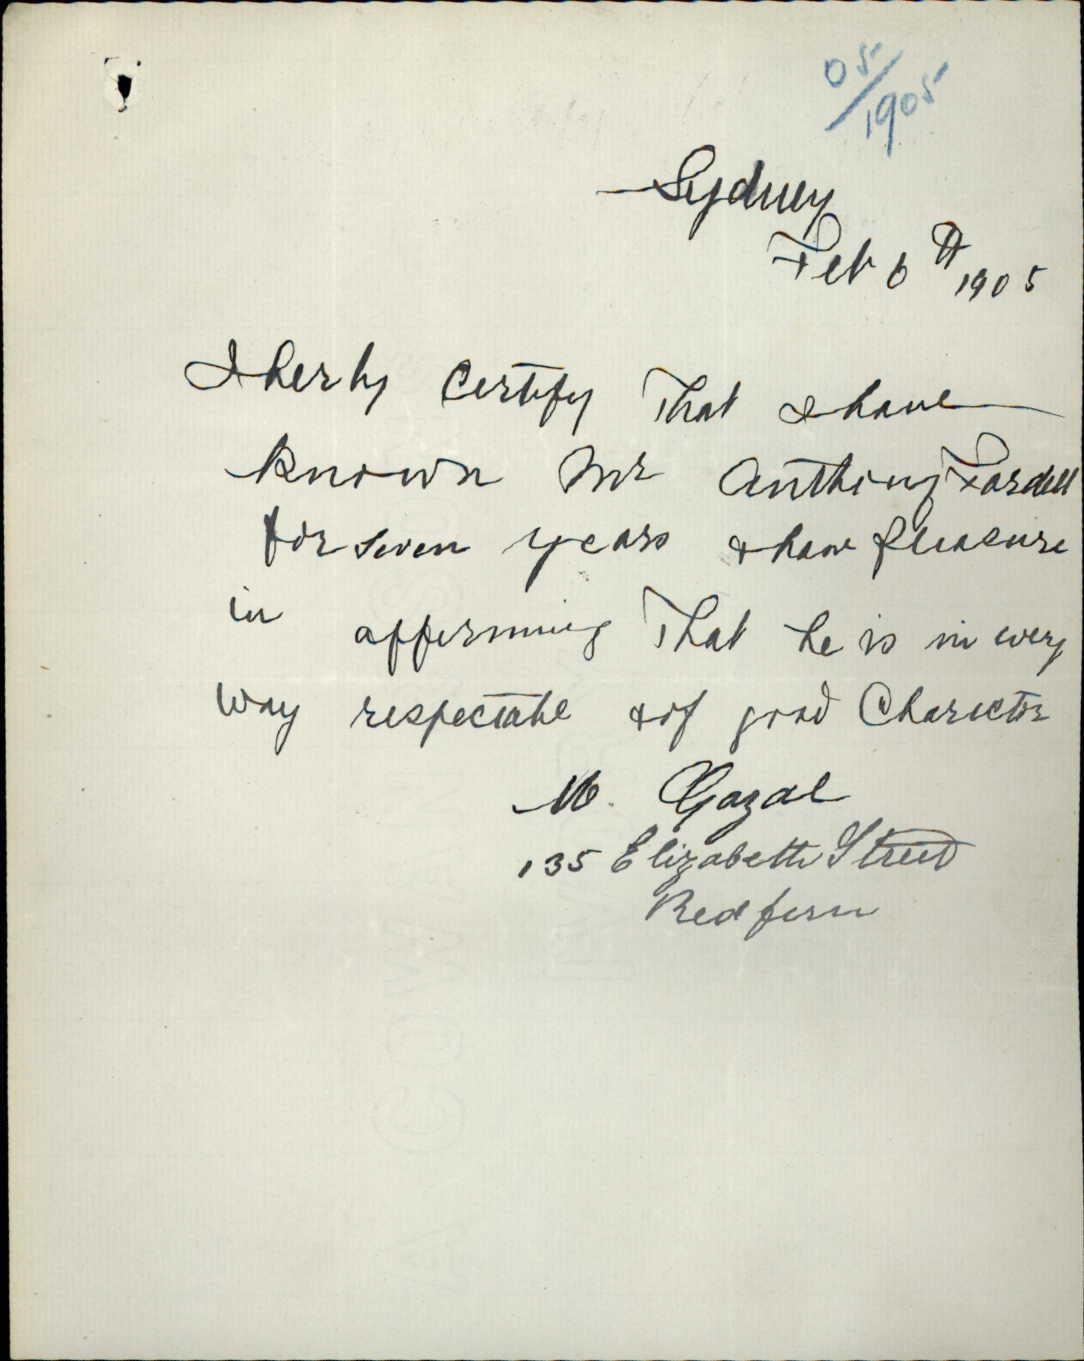 05/1905
Sydney
Feb 6th 1905
I herby Certify That I have
known Mr Anthony Fardell
for seven years & have pleasure
in affirming That he is in every
way respectable & of good Charector
M. Gazal
135 Elizabeth Street
Redfern